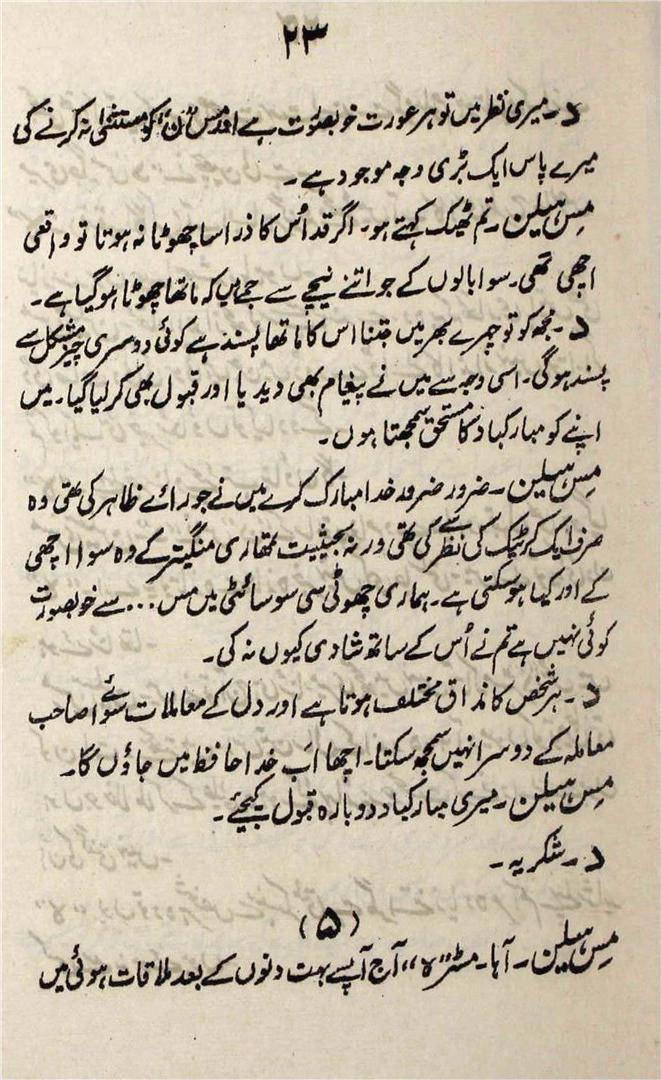 ۲۳
د۔ میری نظر میں تو ہر عورت خوبصورت ہے اور مس "ن" کو مستثنیٰ نہ کرنے کی
میرے پاس ایک بڑی وجہ موجود ہے۔
مس ہیلن۔ تم ٹھیک کہتے ہو۔ اگر قد اُس کا ذرا سا چھوٹا نہ ہوتا تو واقعی
اچھی تھی۔ سوا بالوں کے جو اتنے نیچے سے جمے ہیں کہ ماتھا چھوٹا ہو گیا ہے۔
د۔ مجھ کو تو چہرے بھر میں جتنا اس کا ماتھا پسند ہے کوئی دوسری چیز مشکل سے
پسند ہو گی۔ اسی وجہ سے میں نے پیغام بھی دیدیا اور قبول بھی کر لیا گیا۔ میں
اپنے کو مبارکباد کا مستحق سمجھتا ہوں۔
مس ہیلن۔ ضرور ضرور خدا مبارک کرے میں نے جو رائے ظاہر کی تھی وہ
صرف ایک کریٹک کی نظر سے کی تھی ورنہ بحیثیت تمھاری منگیتر کے وہ سوا اچھی
کے اور کیا ہو سکتی ہے۔ ہماری چھوٹی سی سوسائٹی میں مس ... سے خوبصورت
کوئی نہیں ہے تم نے اُس کے ساتھ شادی کیوں نہ کی۔
د۔ ہر شخص کا مذاق مختلف ہوتا ہے اور دل کے معاملات سوائے صاحب
معاملہ کے دوسرا نہیں سمجھ سکتا۔ اچھا اب خدا حافظ میں جاؤں گا۔
مس ہیلن۔ میری مبارکباد دوبارہ قبول کیجئے۔
د۔ شکریہ۔
(۵)
مس ہیلن۔ آہا۔ مسٹر "لا" آج آپسے بہت دنوں کے بعد ملاقات ہوئی میں